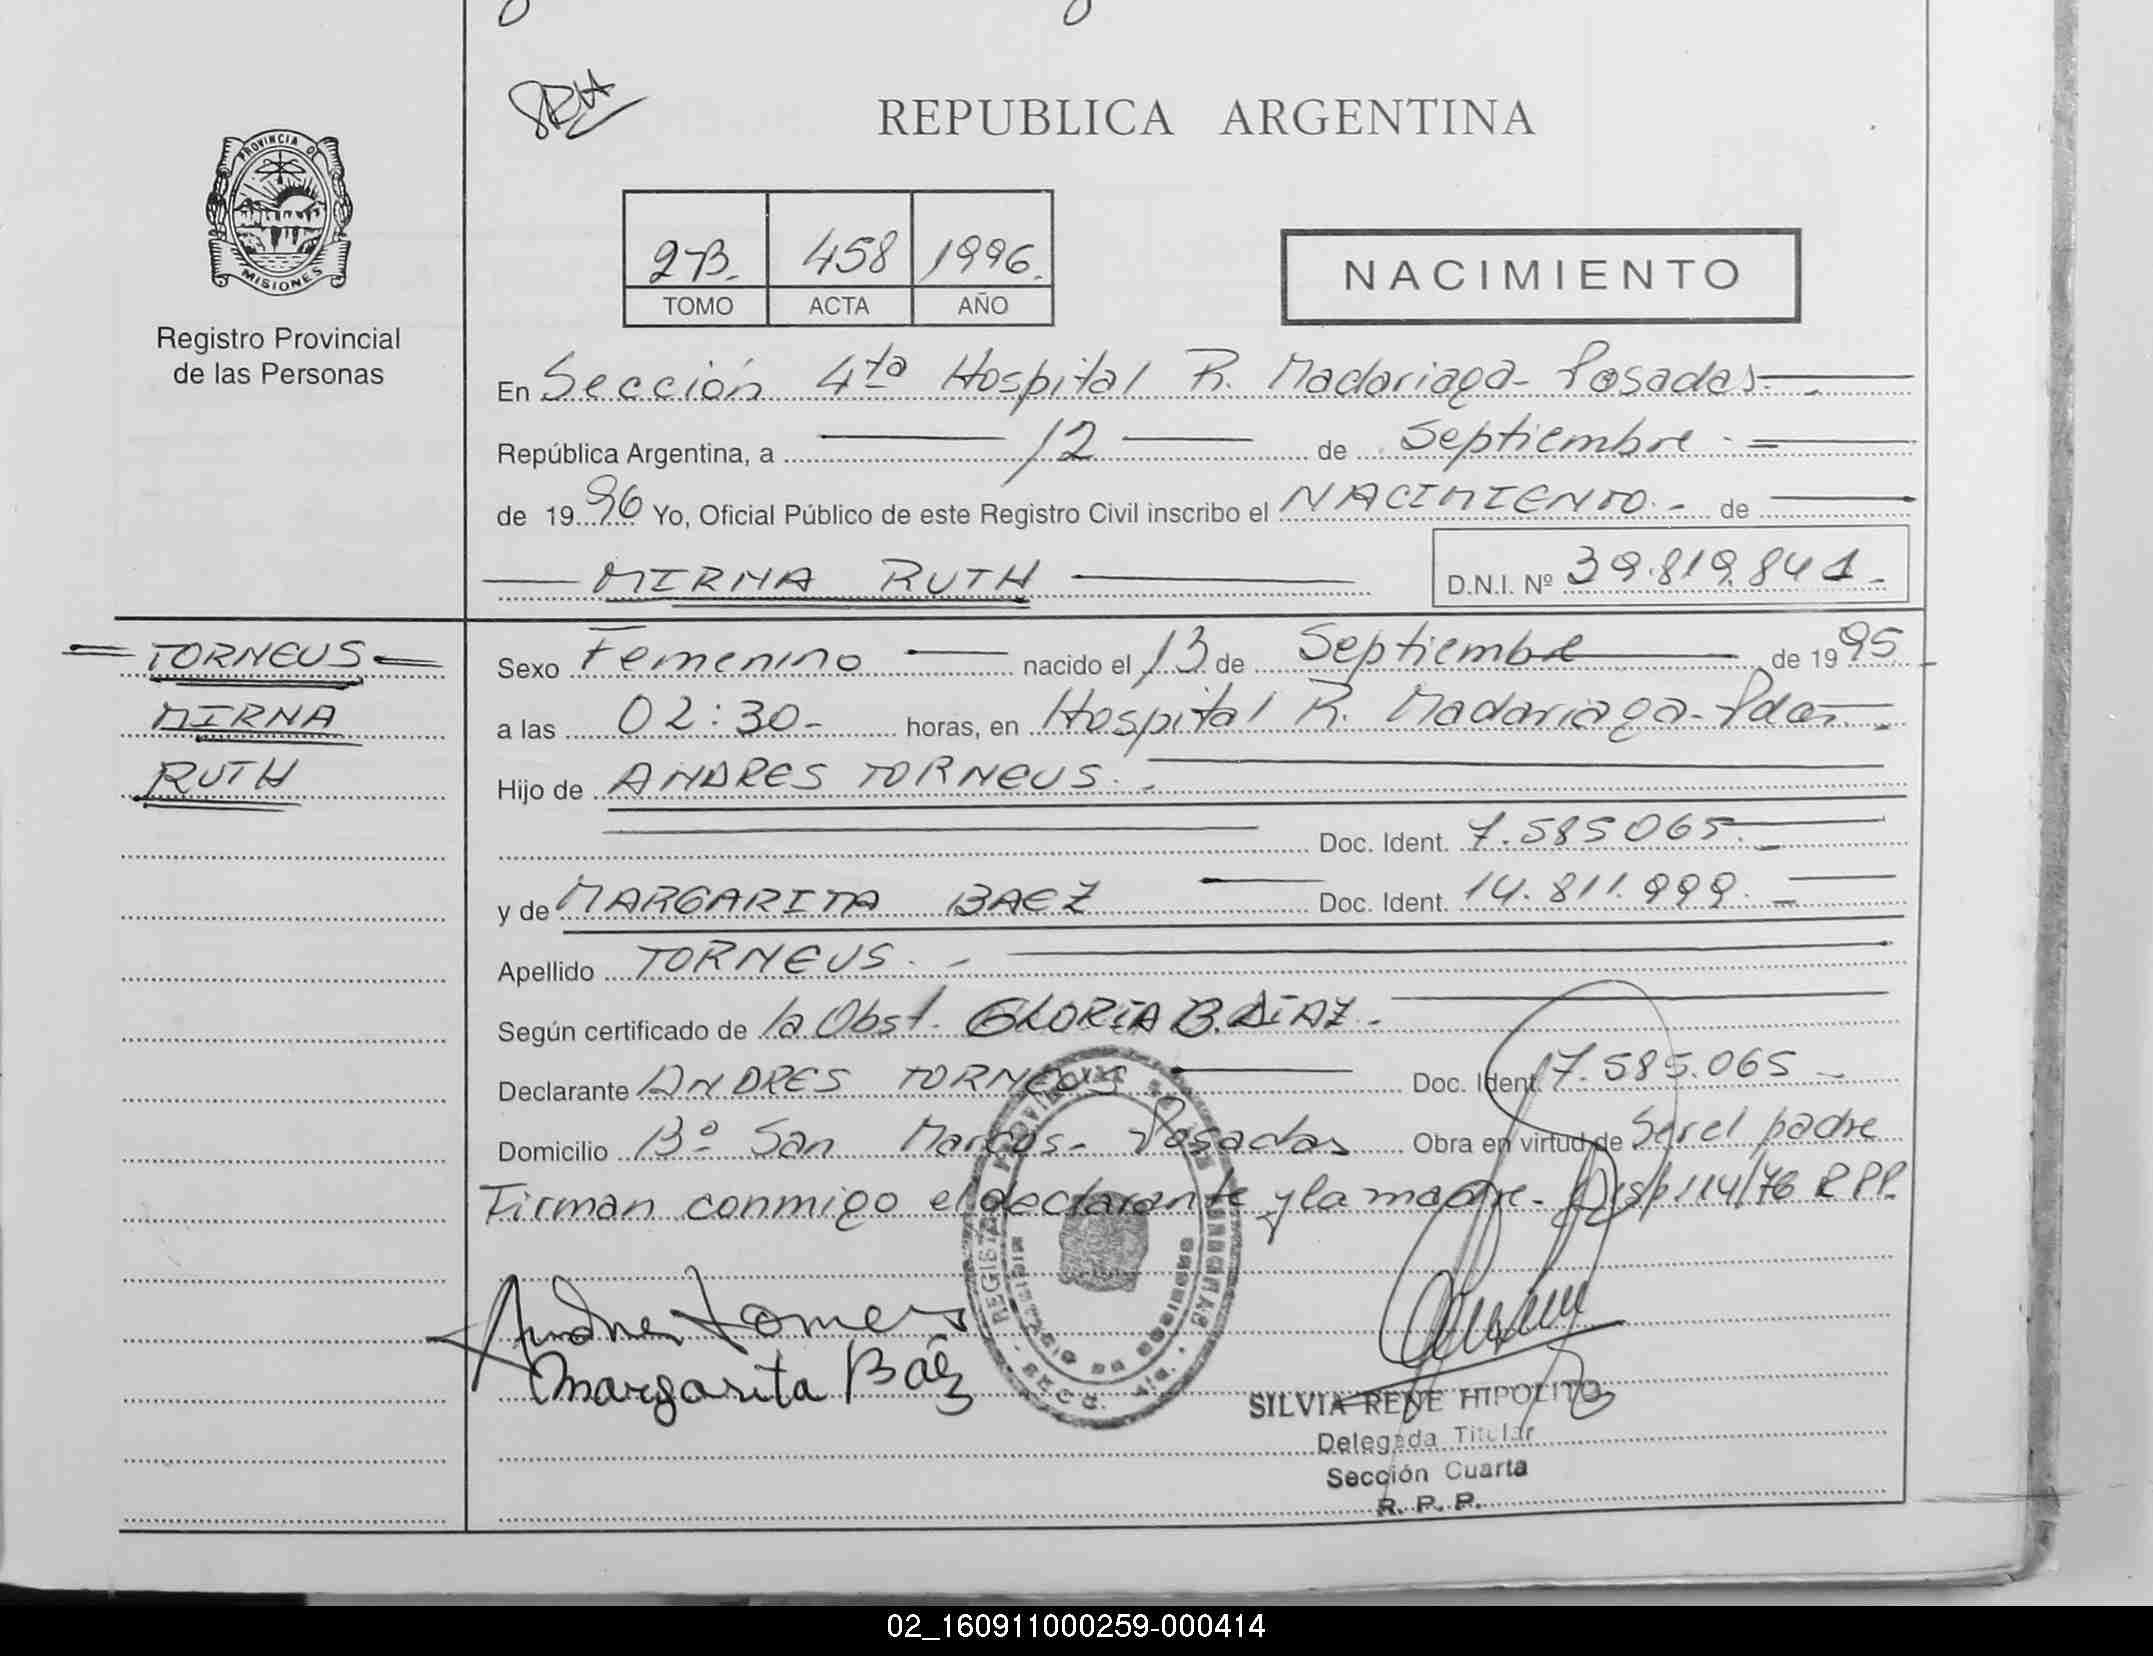 REPUBLICA ARGENTINA
PROVINCIA DE
MISIONES
Registro Provincial
de las Personas
2-B. 458 1996.
TOMO ACTA AÑO
NACIMIENTO
En Sección 4ta Hospital R. Madariaga- Posadas.-
República Argentina, a 12 de Septiembre.-
de 1996 Yo, Oficial Público de este Registro Civil inscribo el NACIMIENTO.- de
MIRNA RUTH D.N.I. Nº 39.819.841-
TORNEUS
MIRNA
RUTH
Sexo Femenino nacido el 13 de Septiembre de 1995
a las 02:30- horas, en Hospital R. Madariaga- Pdas.-
Hijo de ANDRES TORNEUS.-
Doc. Ident. 7.585065.-
y de MARGARITA BAEZ Doc. Ident. 14.811.999.-
Apellido TORNEUS.-
Según certificado de la Obst. GLORIA B. DÍAZ.-
Declarante ANDRES TORNEUS Doc. Ident. 7.585.065-
Domicilio Bº San Marcos- Posadas Obra en virtud de Ser el padre
Firman conmigo el declarante y la madre- Disp 114/76 RPP.
Margarita Báez
SILVIA RENE HIPOLITO
Delegada Titular
Sección Cuarta
R. P. P.
02_160911000259-000414